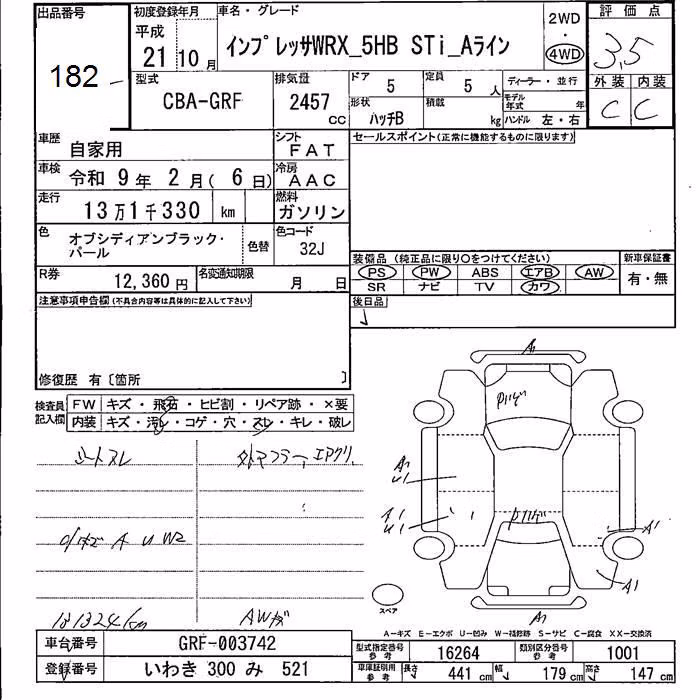 出品番号
182
初度登録年月
平成
21年 10月
車名・グレード
インプレッサWRX_5HB STi_Aライン
2WD
・
4WD
評価点
3.5
外装 内装
C C
型式
CBA-GRF
排気量
2457
CC
ドア
5
定員
5 人
形状
ハッチB
積載
kg
ディーラー・並行
モデル年式 年
ハンドル 左・右
車歴
自家用
シフト
FAT
車検
令和 9年 2月( 6日)
冷房
AAC
走行
13万1千330 km
燃料
ガソリン
色
オブシディアンブラック・パール
色替
色コード
32J
R券
12,360円
名変通知期限
月 日
セールスポイント(正常に機能するものに限ります)
装備品 (純正品に限り○をつけてください)
PS PW ABS エアB AW
SR ナビ TV カワ
新車保証書
有・無
後日品
注意事項申告欄(不具合内容等は具体的に記入して下さい)
修復歴 有〔箇所 〕
検査員記入欄
FW キズ・飛石・ヒビ割・リペア跡・×要
内装 キズ・汚レ・コゲ・穴・スレ・キレ・破レ
シートスレ
外マフラー、エアクリ
小キズ A U W2
131324km
AWキズ
A1
P11ゲ
A1
U1
A1
U1
P11ゲ
A1
A1
A1
スペア
A—キズ E—エクボ U—凹み W—補修跡 S—サビ C—腐食 XX—交換済
車台番号
GRF-003742
登録番号
いわき 300 み 521
型式指定番号
参考
16264
類別区分番号
参考
1001
車庫証明用
参考
長さ
441 cm
幅
179 cm
高さ
147 cm